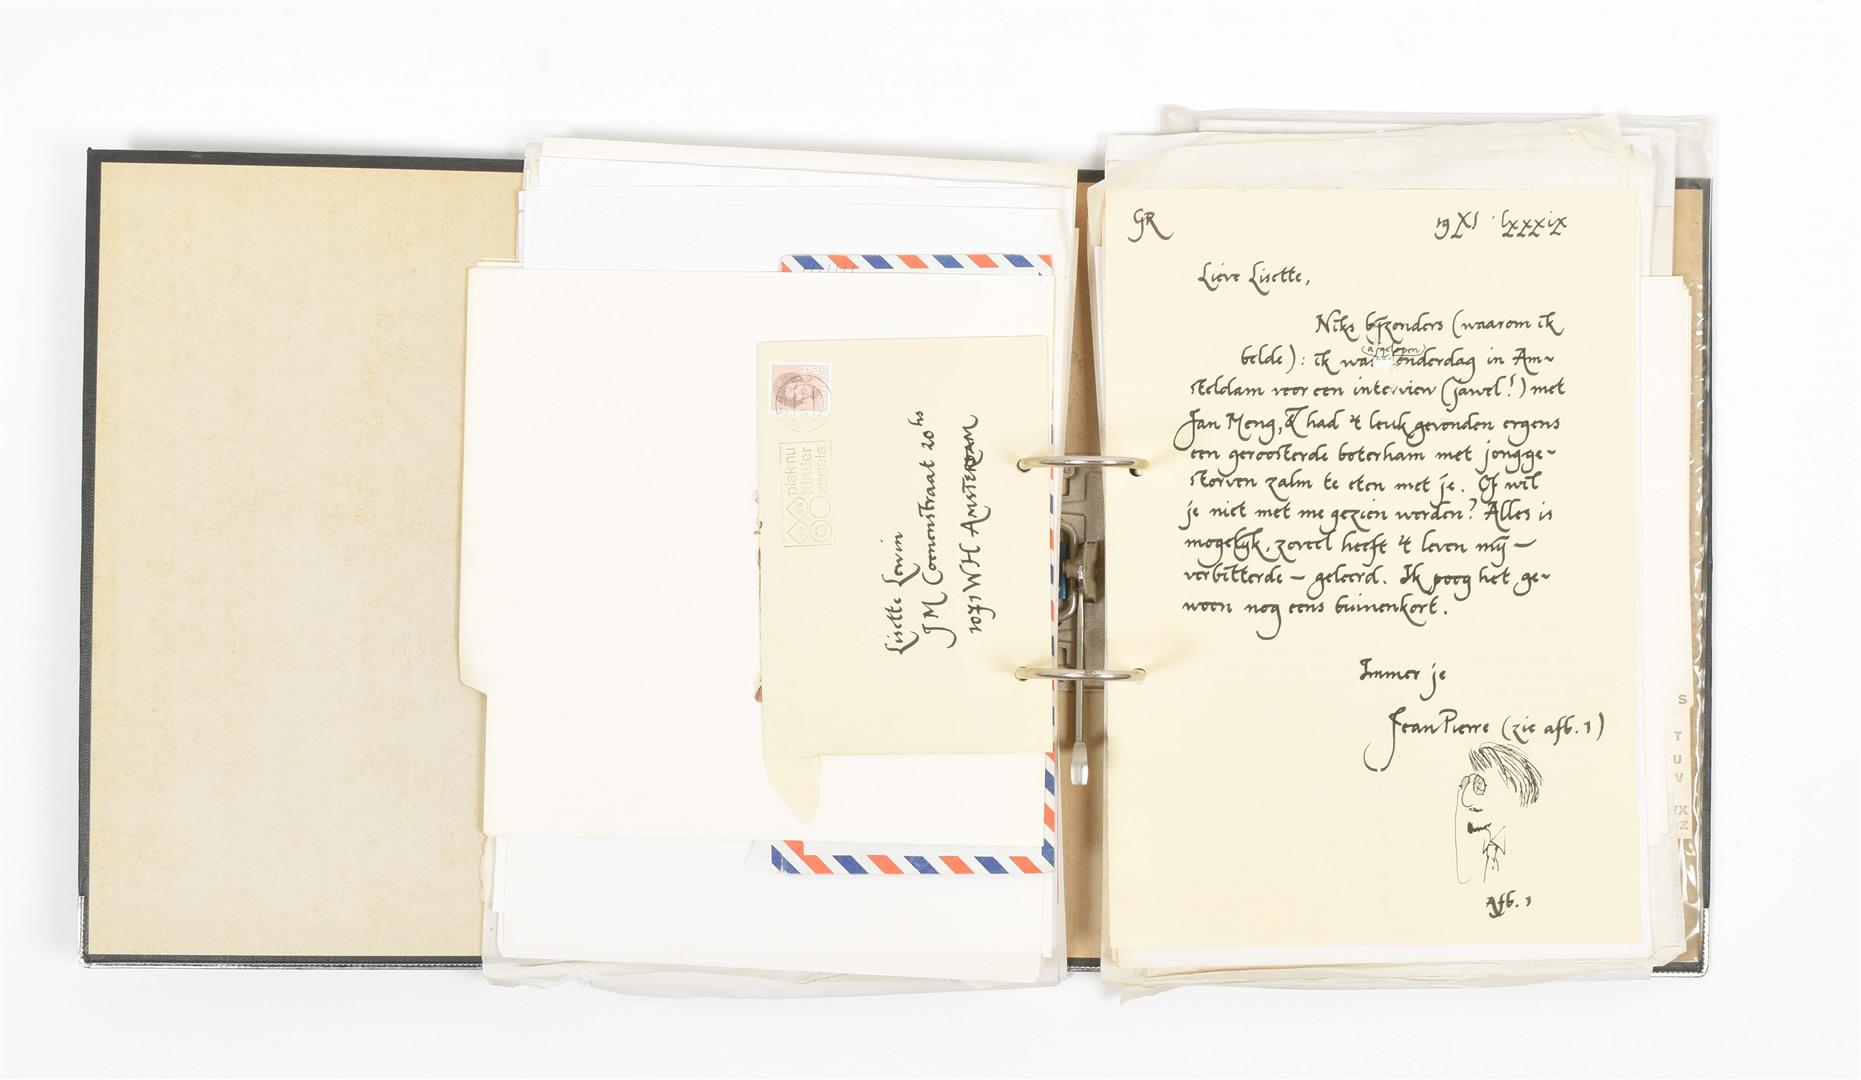 plak nu
kinder
zegels
Lisette Lewin
JM Coenenstraat 20hs
1071 WH Amsterdam
GR
19 XI 'lxxxix
Lieve Lisette,
Niks bijzonders (waarom ik
belde): ik was (afgelopen) donderdag in Am-
steldam voor een interview (jawel!) met
Jan Meng, & had 't leuk gevonden ergens
een geroosterde boterham met jongge-
storven zalm te eten met je. Of wil
je niet met me gezien worden? Alles is
mogelijk, zoveel heeft 't leven mij –
verbitterde – geleerd. Ik poog het ge-
woon nog eens binnenkort.
Immer je
Jean Pierre (zie afb. 1)
Afb. 1
S
T
U
V